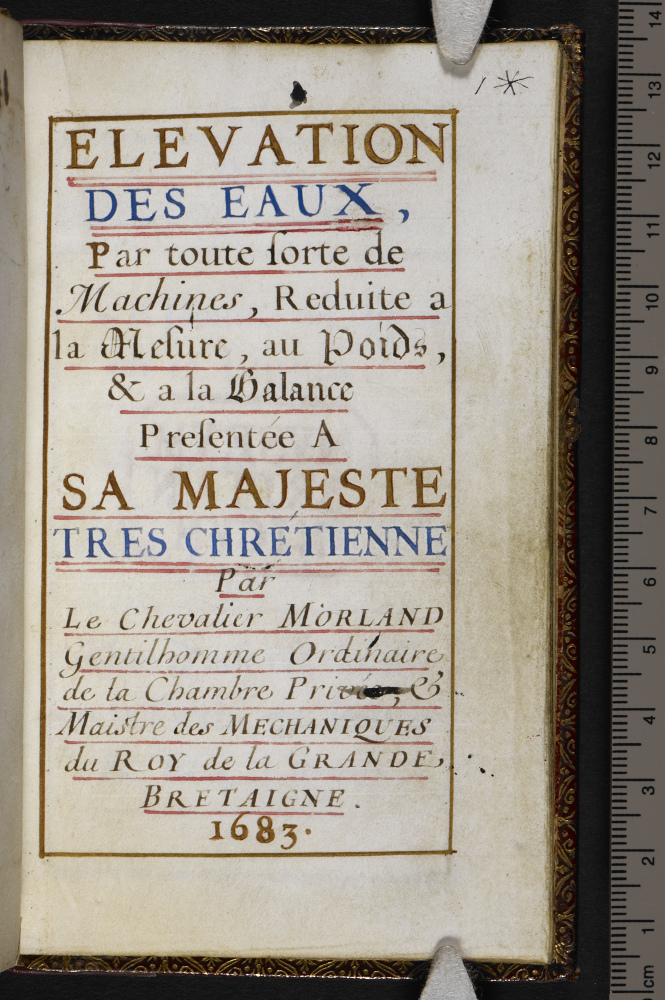 1 *
ELEVATION
DES EAUX,
Par toute ſorte de
Machines, Reduite a
la Meſure, au Poids,
& a la Balance
Preſentée A
SA MAJESTE
TRES CHRÉTIENNE
Par
Le Chevalier MORLAND
Gentilhomme Ordinaire
de la Chambre Privée, &
Maistre des MECHANIQUES
du ROY de la GRANDE,
BRETAIGNE.
1683.
14
13
12
11
10
9
8
7
6
5
4
3
2
1
cm